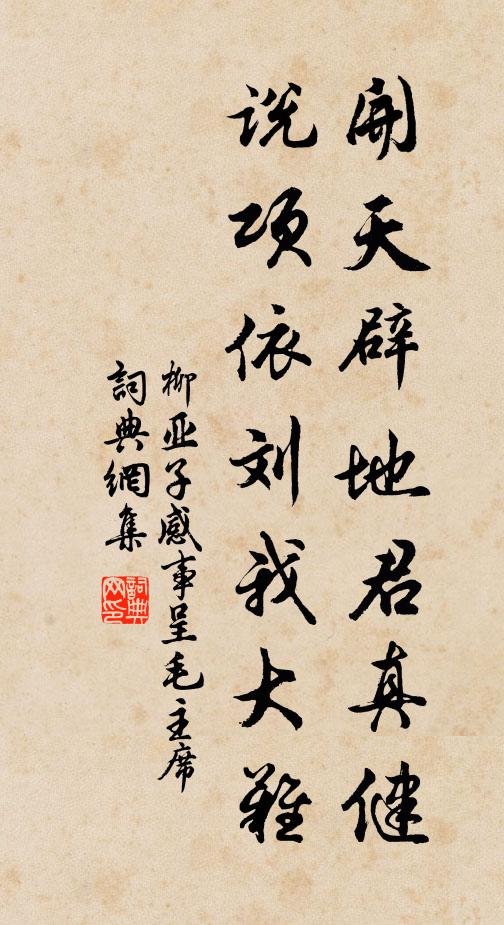 開天辟地君真健
说项依刘我大難
柳亚子感事呈毛主席
詞典網集
詞典
网印